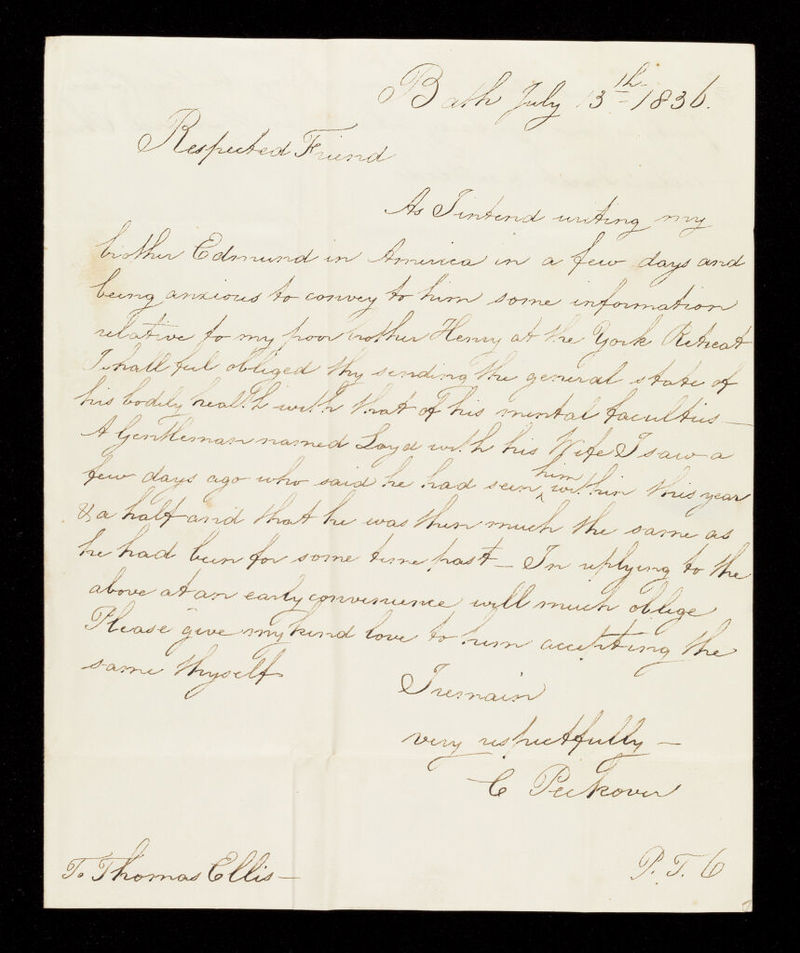 Bath July 13th 1836.
Respected Friend
As I intend writing my
brother Edmund in America in a few days and
being anxious to convey to him some information
relative to my poor brother Henry at the York Retreat
I shall feel obliged thy sending the general state of
his bodily health with that of his mental faculties —
A Gentleman named Loyd with his Wife I saw a
few days ago who said he had seen him within this year
& a half and that he was then much the same as
he had been for some time past — In replying to the
above at an early convenience will much oblige
Please give my kind love to him accepting the
same thyself
I remain
very respectfully —
C Peckover
To Thomas Ellis —
P. T. O